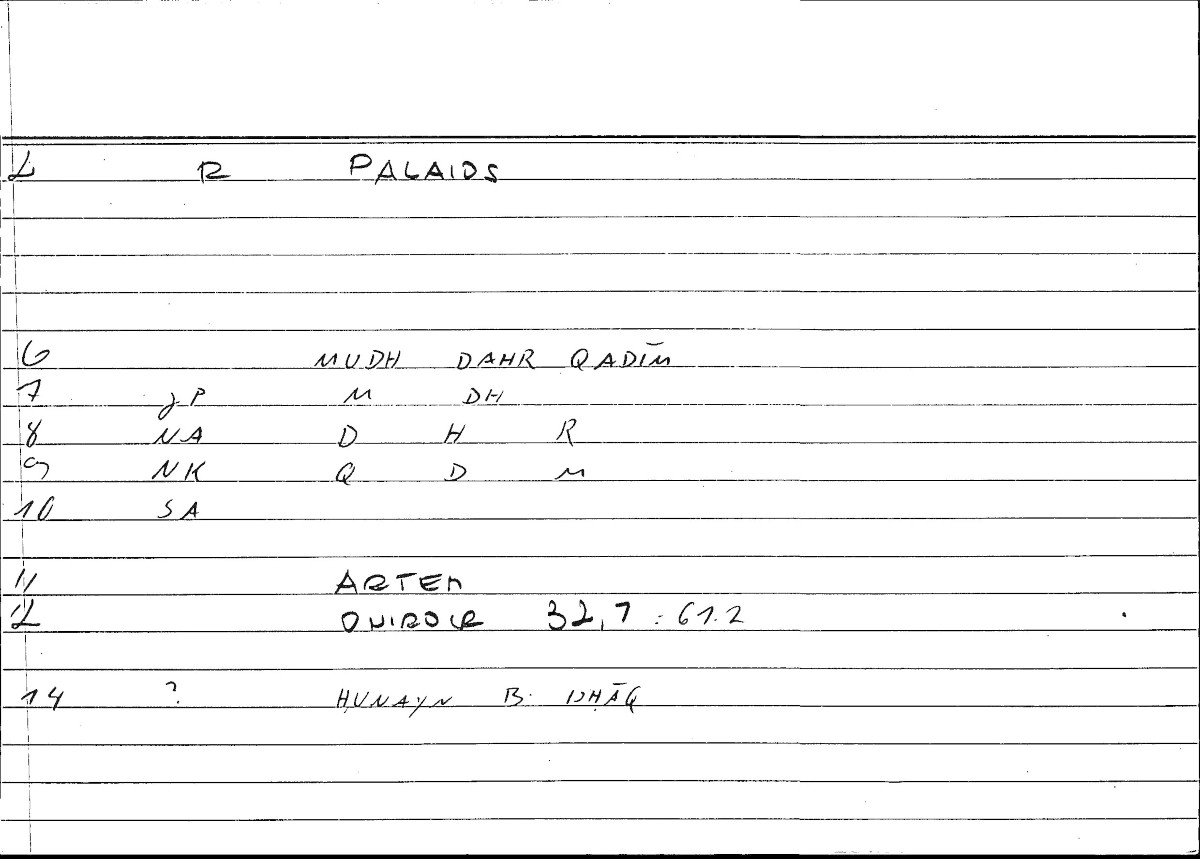 2 R PALAIOS
6 MUDH DAHR QADĪM
7 gP M DH
8 NA D H R
9 NK Q D M
10 SA
11 ARTEM
12 ONIROCR 32,7 : 61.2
14 ? ḤUNAYN B. ISḤĀQ